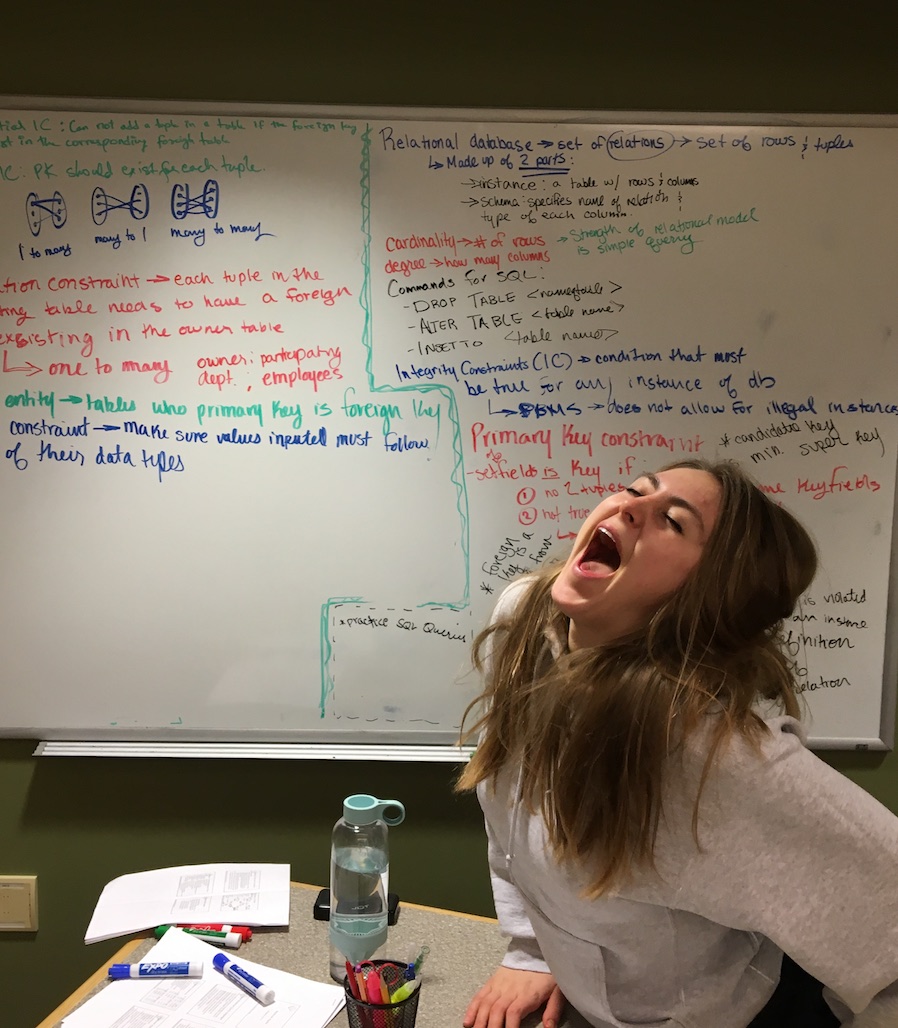 IC: Can not add a tuple in a table if the foreign key
in the corresponding foreign table
IC: PK should exist for each tuple.
1 to many
many to 1
many to many
constraint → each tuple in the
table needs to have a foreign
exsisting in the owner table
↳ one to many
owner: participating
dept. ; employees
entity → tables who primary key is foreign key
constraint → make sure values inputed must follow
of their data types
Relational database → set of relations → set of rows & tuples
↳ Made up of 2 parts:
→ instance: a table w/ rows & colums
→ schema: specifies name of relation &
type of each column.
Cardinality → # of rows
degree → how many columns
→ strength of relational model
is simple query
Commands for SQL:
- DROP TABLE <name of table>
- ALTER TABLE <table name>
- INSETTO <table name>
Integrity Constraints (IC) → condition that most
be true for any instance of db
↳ DBMS → does not allow for illegal instances
Primary Key constraint
* candidate key
min. super key
- set of fields is key if
① no 2 tuples
key fields
② not true
* foreign
key is a
from
is violated
an instance
relation
* practice SQL Queries
JOY
Expo